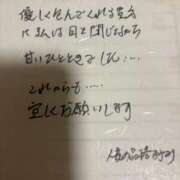 優しく包んでくれる貴方
に私は目を閉じながら
甘いひとときでした…
これからも…
宜しくお願いします